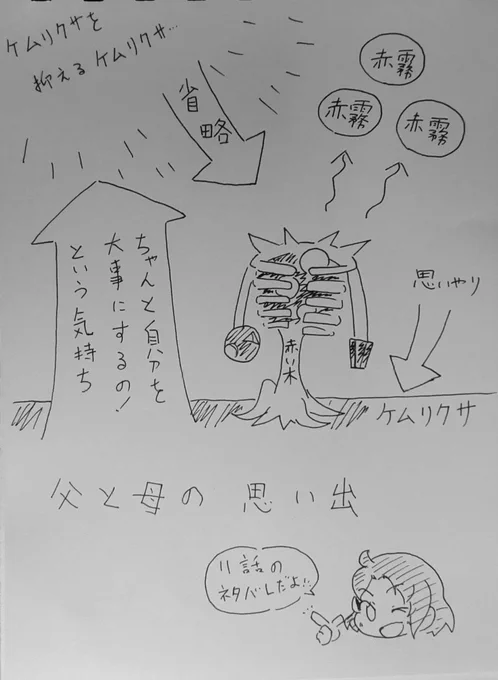 ケムリクサを
抑えるケムリクサ…
省略
赤霧
赤霧
赤霧
ちゃんと自分を
大事にするの!
という気持ち
赤い木
思いやり
ケムリクサ
父と母の思い出
11話の
ネタバレだよ!!